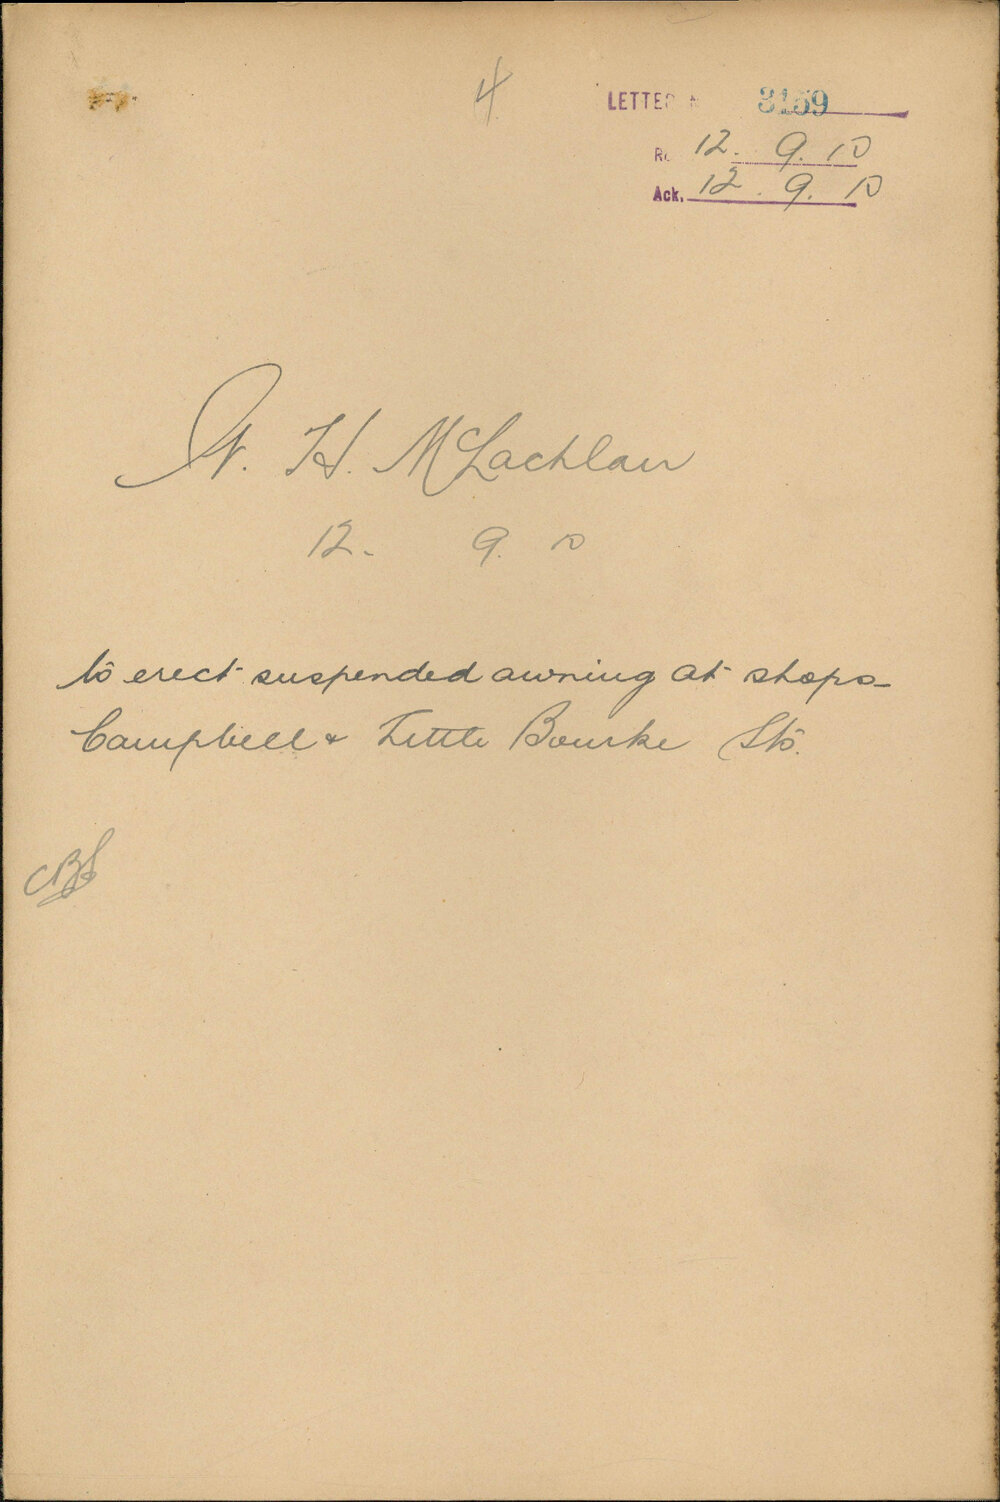 4
LETTER N 3159
Re 12. 9. 10
Ack. 12. 9. 10
W. H. McLachlan
12. 9. 10
to erect suspended awning at shops
Campbell & Little Bourke Sts.